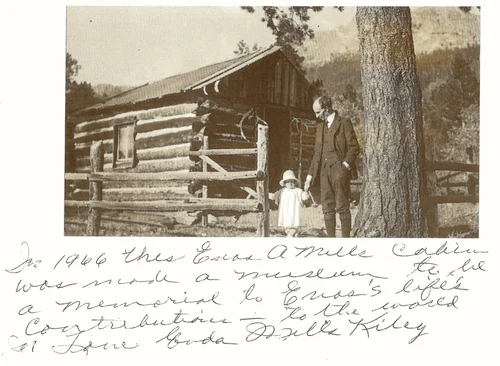 In 1966 this Enos A Mills Cabin
was made a museum to be
a memorial to Enos's life's
contributions – to the world
In Love Enda Mills Kiley